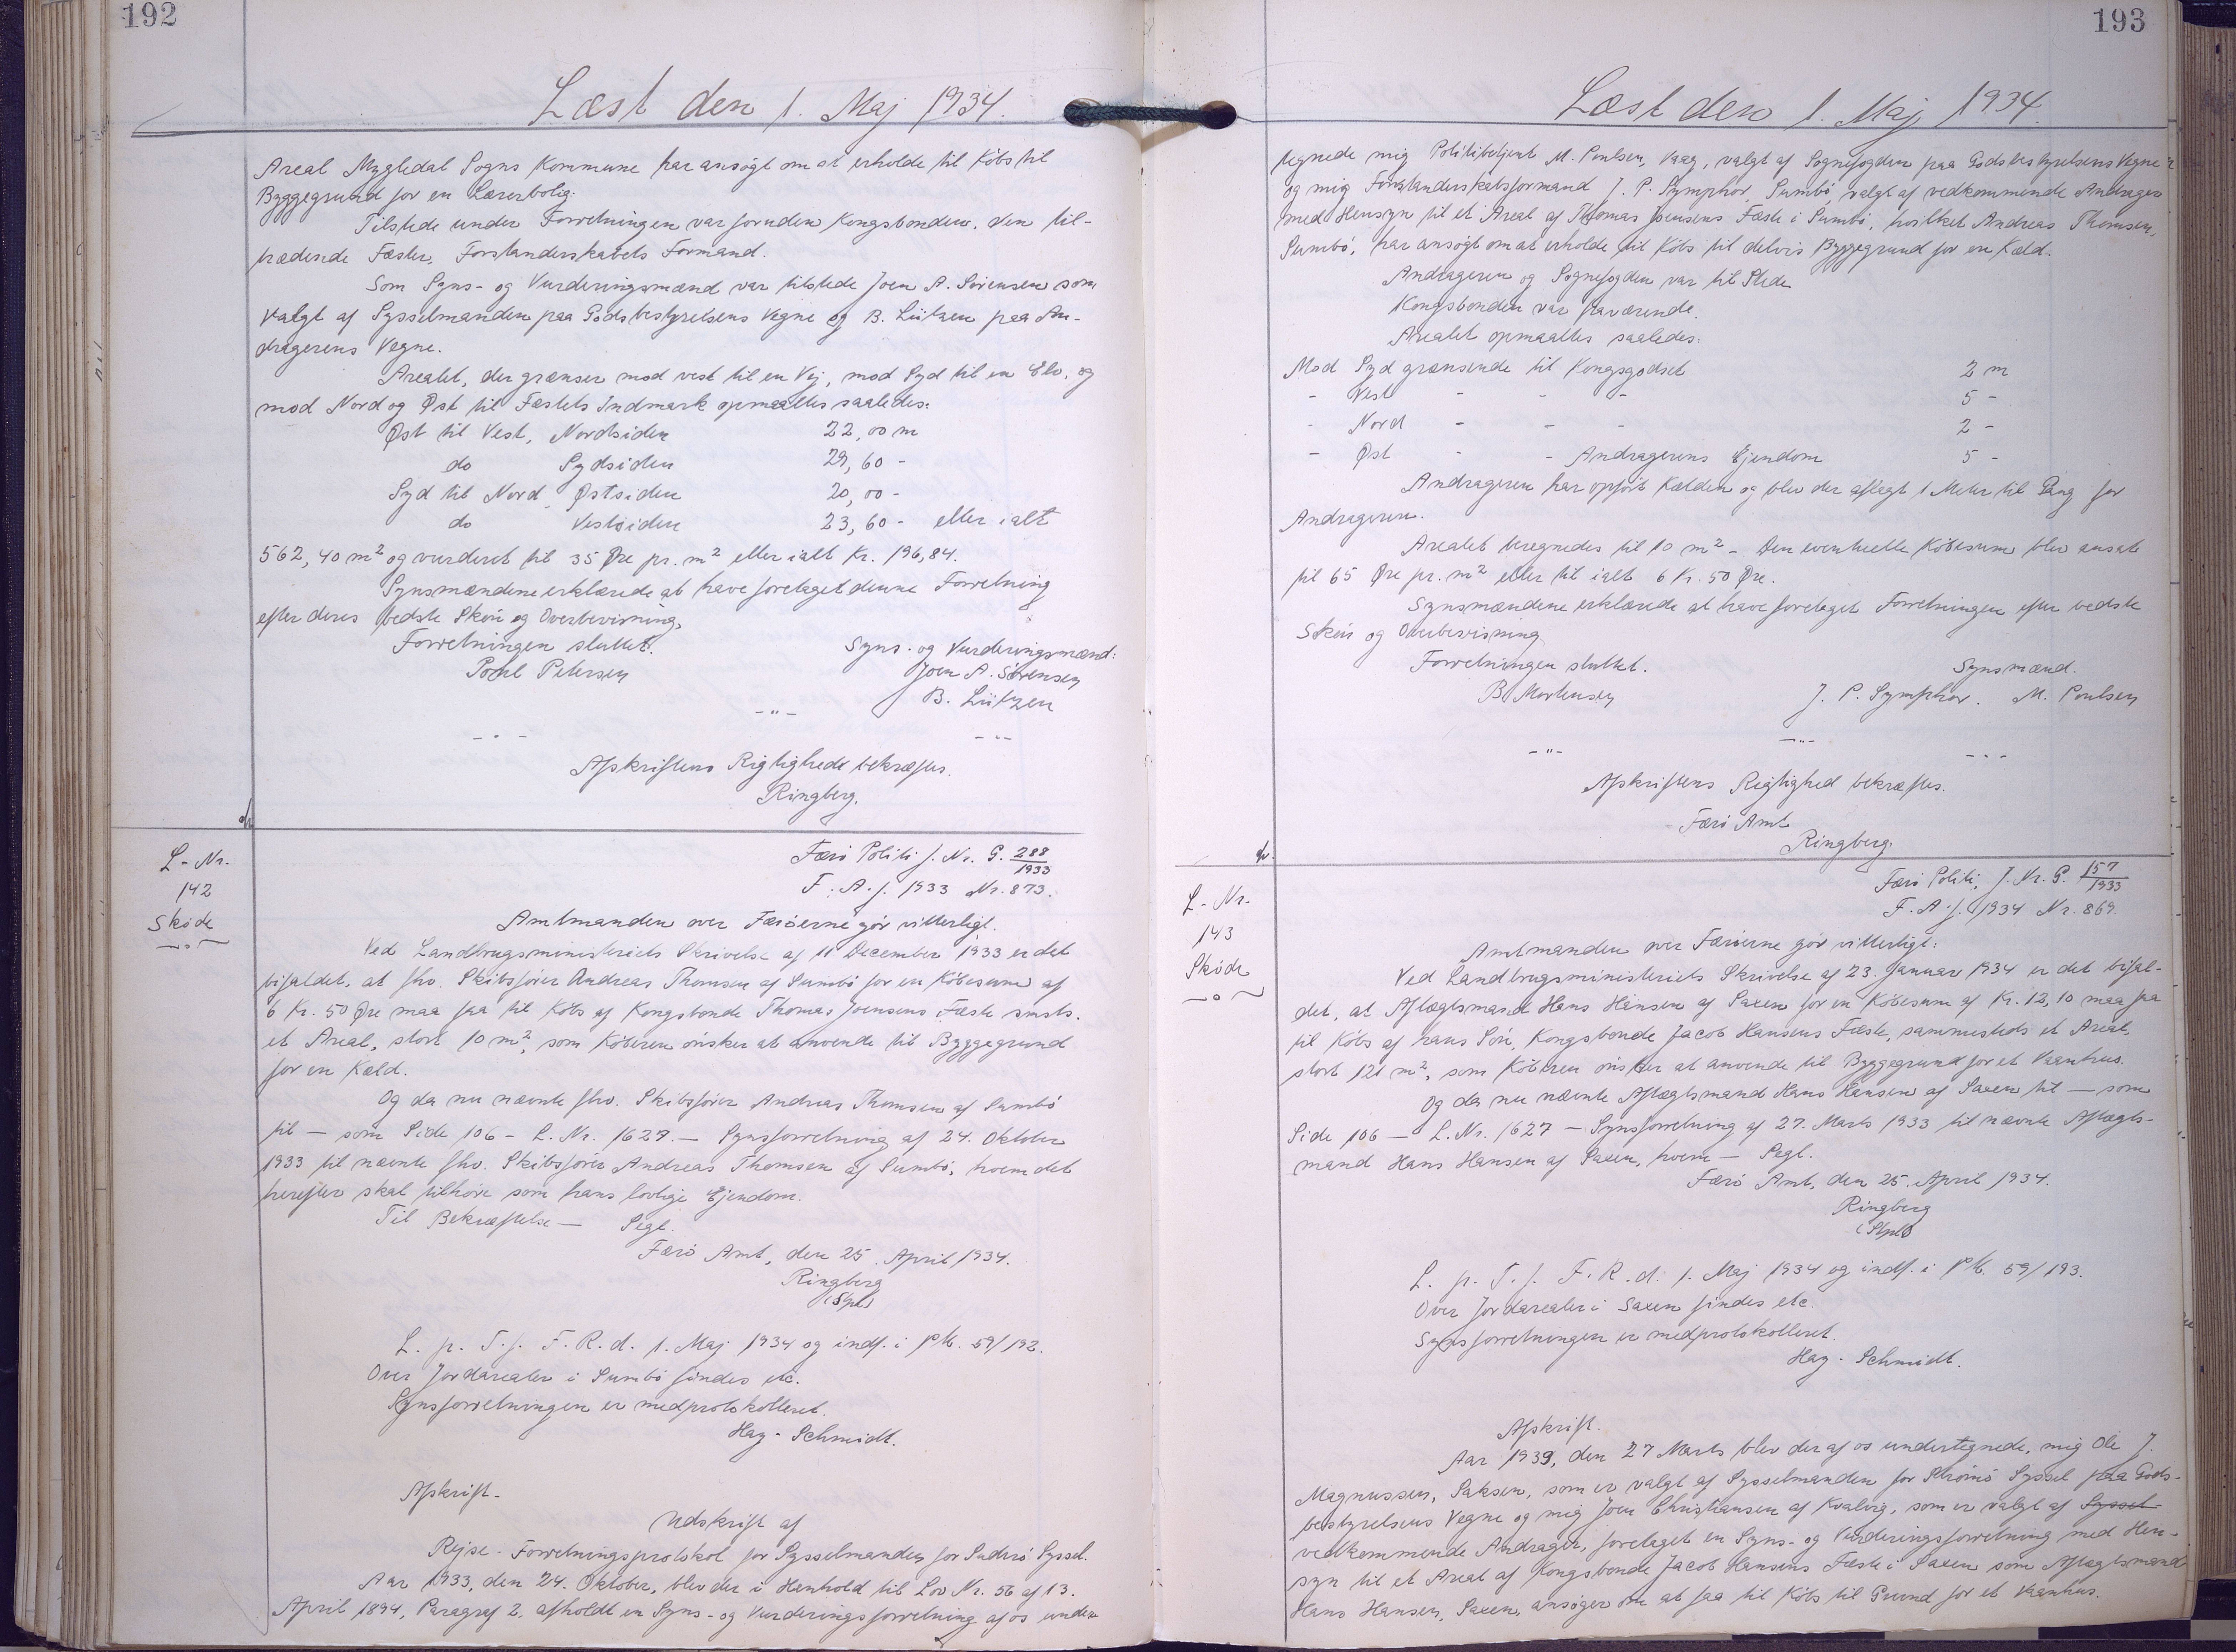 192
Læst den 1. Maj 1934.
Areal Mygledal Sogns Kommune har ansøgt om at erholde til Købs til
Byggegrund for en Lærerbolig.
Tilstede under Forretningen var foruden Kongsbonden, den til-
trædende Fæster, Forstanderskabets Formand.
Som Syns- og Vurderingsmænd var tilstede Joen A. Sörensen som
valgt af Sysselmanden paa Godsbestyrelsens Vegne og B. Lützen paa An-
dragerens Vegne.
Arealet, der grænser mod vest til en Vej, mod Syd til en Elv, og
mod Nord og Øst til Fæstets Indmark opmaaltes saaledes:
Øst til Vest, Nordsiden 22,00 m
do Sydsiden 29,60 -
Syd til Nord, Østsiden 20,00 -
do Vestsiden 23,60 - eller ialt
562,40 m² og vurderet til 35 Øre pr. m² eller ialt Kr. 196,84.
Synsmændene erklærede at have foretaget denne Forretning
efter deres bedste Skön og Overbevisning.
Forretningen sluttet. Syns- og Vurderingsmænd:
Poul Petersen Joen A. Sörensen
B. Lützen
Afskriftens Rigtighede bekræftes.
Ringberg.
L-Nr.
142
Sköde
Færö Politi J. Nr. G. 288/1933
F. A. j. 1933 Nr. 873.
Amtmanden over Færöerne gör vitterligt.
Ved Landbrugsministeriets Skrivelse af 11 December 1933 er det
bifaldet, at fhv. Skibsförer Andreas Thomsen af Sumbö for en Købesum af
6 Kr. 50 Øre maa faa til Købs af Kongsbonde Thomas Joensens Fæste smsts.
et Areal, stort 10 m², som Köberen önsker at anvende til Byggegrund
for en Kæld.
Og da nu nævnte fhv. Skibsförer Andreas Thomsen af Sumbö
til — som Side 106 - L. Nr. 1627. — Synsforretning af 24. Oktober
1933 til nævnte fhv. Skibsförer Andreas Thomsen af Sumbö, hvem det
herefter skal tilhöre som hans lovlige Ejendom.
Til Bekræftelse — Segl.
Færö Amt, den 25. April 1934.
Ringberg
(Stpl)
L. p. T. f. F. R. d. 1. Maj 1934 og indf. i P M. 59/192.
Over Jordarealer i Sumbö findes etc.
Synsforretningen er medprotokolleret.
Hay-Schmidt.
Afskrift.
Udskrift af
Rejse-Forretningsprotokol for Sysselmanden for Suderö Syssel.
Aar 1933, den 24. Oktober, blev der i Henhold til Lov Nr. 56 af 13.
April 1894, Paragraf 2. afholdt en Syns- og Vurderingsforretning af os under-
193
Læst den 1. Maj 1934.
tegnede mig Politibetjent M. Poulsen, Vaag, valgt af Sognefogden paa Godsbestyrelsens Vegne
og mig Forstanderskabsformand J. P. Symphor, Sumbö, valgt af vedkommende Andrager
med Hensyn til et Areal af Thomas Joensens Fæste i Sumbö, hvilket Andreas Thomsen,
Sumbö, har ansøgt om at erholde til Købs til delvis Byggegrund for en Kæld.
Andrageren og Sognefogden var til Stede
Kongsbonden var fraværende.
Arealet opmaaltes saaledes:
Mod Syd grænsende til Kongsgodset 2 m
- Vest - - - 5 -
- Nord - - - 2 -
- Øst - - Andragerens Ejendom 5 -
Andrageren har opfört Kælden og blev der aflagt 1 Meter til Gang for
Andrageren.
Arealet beregnedes til 10 m² - Den eventuelle Købesum blev ansat
til 65 Øre pr. m² eller til ialt 6 Kr. 50 Øre.
Synsmændene erklærede at have foretaget Forretningen efter bedste
Skön og Overbevisning.
Forretningen sluttet. Synsmænd.
B. Mortensen J. P. Symphor. M. Poulsen
Afskriftens Rigtighed bekræftes.
Færö Amt
Ringberg.
L-Nr.
143
Sköde
Færö Politi, J. Nr. G. 157/1933
F. A. j. 1934 Nr. 869.
Amtmanden over Færöerne gör vitterligt:
Ved Landbrugsministeriets Skrivelse af 23. Januar 1934 er det bifal-
det, at Aftægtsmand Hans Hansen af Saxen for en Købesum af Kr. 12,10 maa faa
til Købs af hans Sön, Kongsbonde Jacob Hansens Fæste, sammesteds et Areal,
stort 121 m², som Köberen önsker at anvende til Byggegrund for et Vaanhus.
Og da nu nævnte Aftægtsmand Hans Hansen af Saxen til — som
Side 106 — L. Nr. 1627 — Synsforretning af 27. Marts 1933 til nævnte Aftægts-
mand Hans Hansen af Saxen, hvem — Segl.
Færö Amt, den 25. April 1934.
Ringberg
(Stpl)
L. p. T. f. F. R. d. 1. Maj 1934 og indf. i P M. 59/193.
Over Jordarealer i Saxen findes etc.
Synsforretningen er medprotokolleret.
Hay-Schmidt.
Afskrift.
Aar 1939, den 27 Marts blev der af os undertegnede, mig Ole J.
Magnussen, Saksen, som er valgt af Sysselmanden for Strömö Syssel paa Gods-
bestyrelsens Vegne og mig Joen Christiansen af Kvalvig, som er valgt af Syssel
vedkommende Andrager, foretaget en Syns- og Vurderingsforretning med Hen-
syn til et Areal af Kongsbonde Jacob Hansens Fæste i Saxen som Aftægtsmand
Hans Hansen, Saxen, ansøger om at faa til Købs til Grund for et Vaanhus.